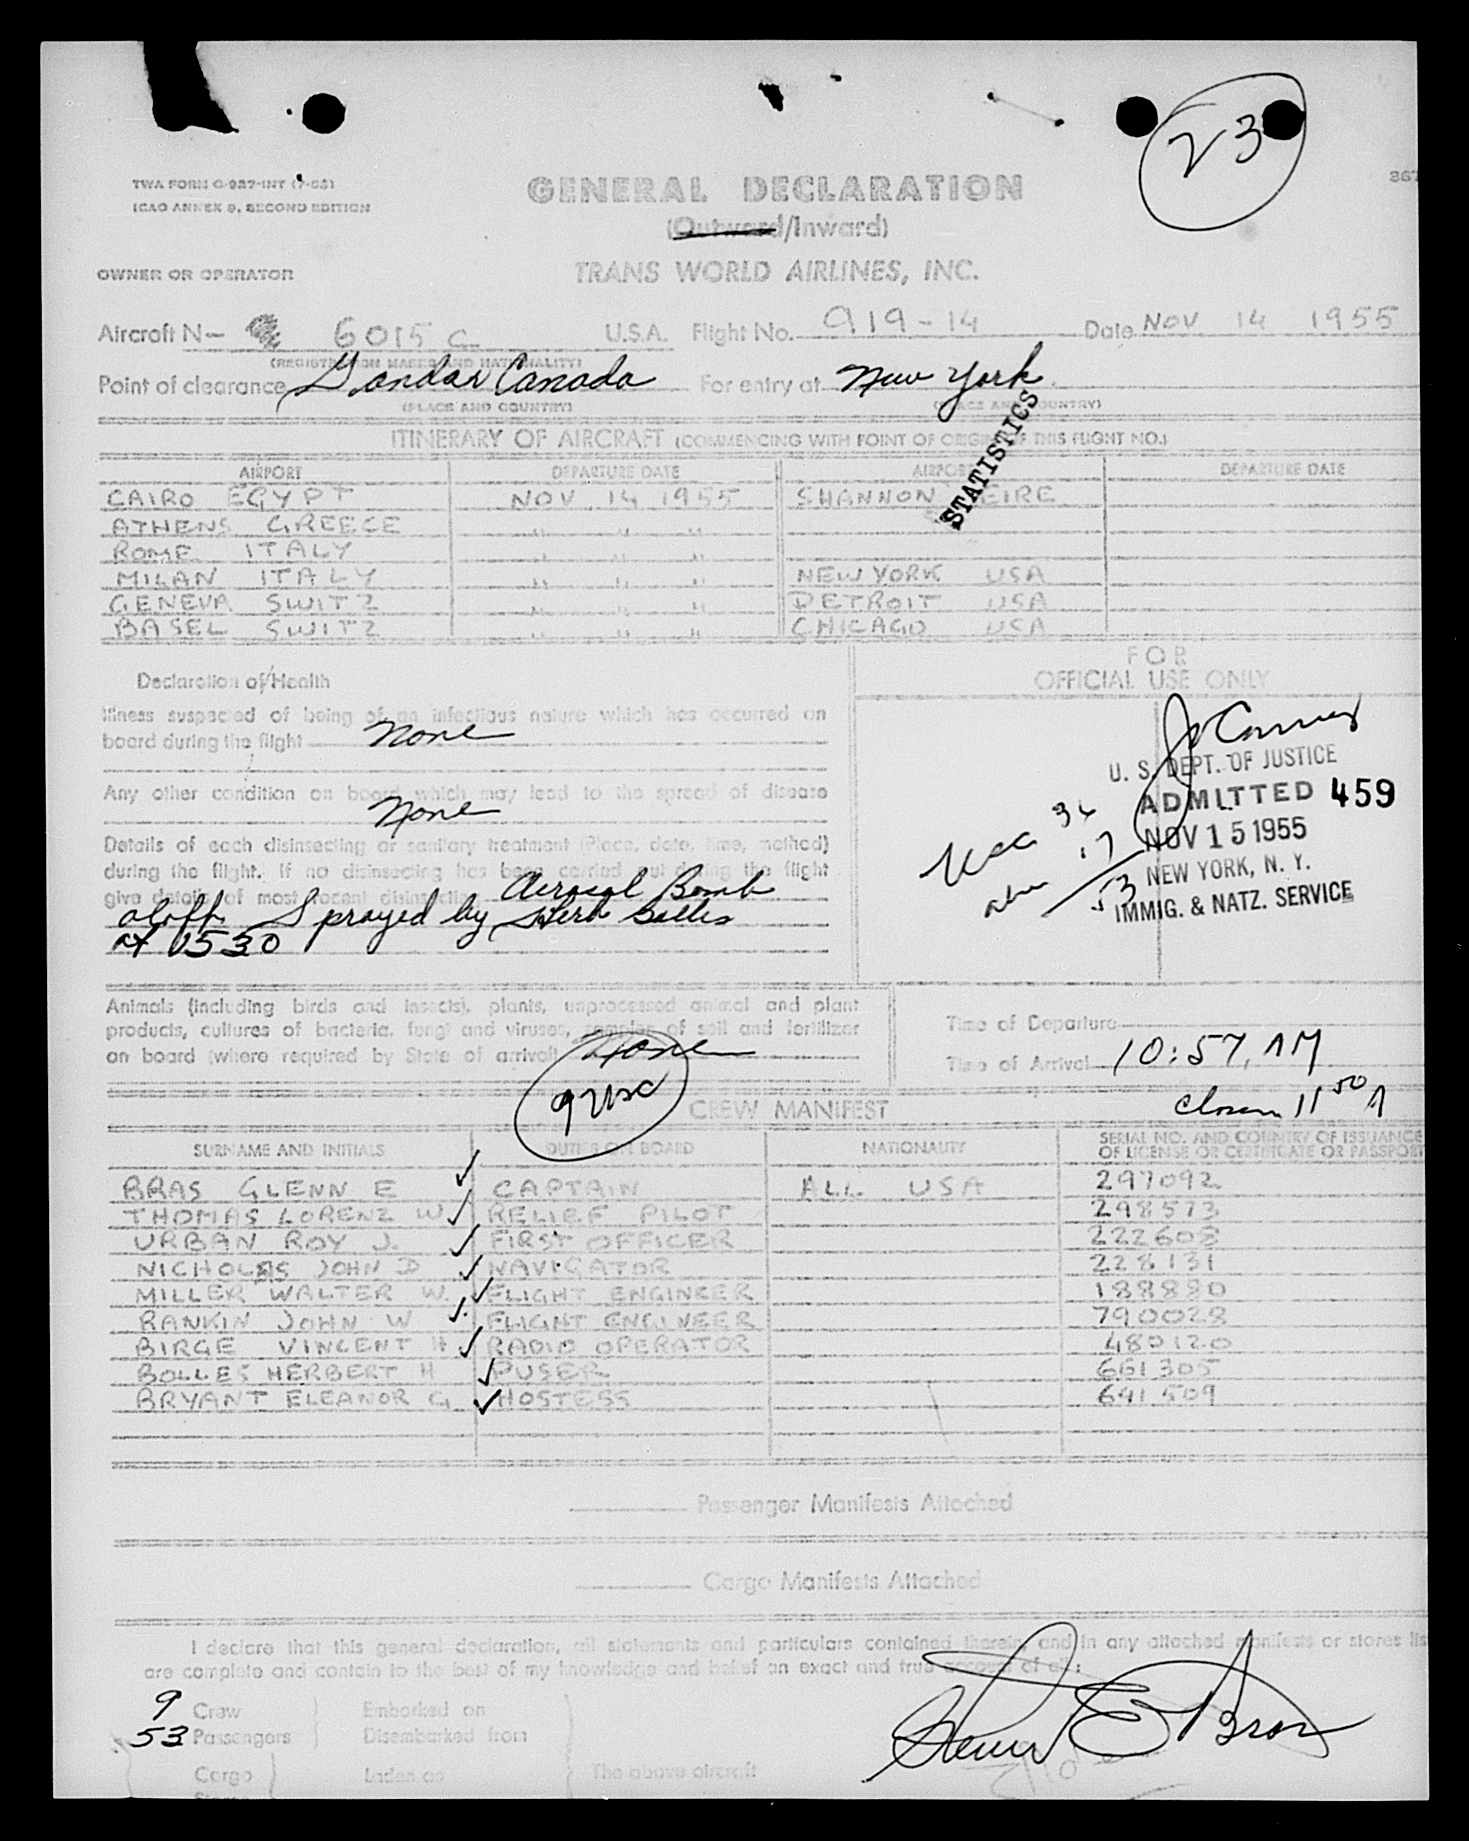 23
TWA FORM O-937-INT (7-53)
ICAO ANNEX 9, SECOND EDITION
GENERAL DECLARATION
367
(Outward/Inward)
OWNER OR OPERATOR TRANS WORLD AIRLINES, INC.
Aircraft N- 6015 C U.S.A. Flight No. 919-14 Date NOV 14 1955
(REGISTRATION MARKS AND NATIONALITY)
Point of clearance Gandar Canada For entry at New York
(PLACE AND COUNTRY) (PLACE AND COUNTRY)
STATISTICS
ITINERARY OF AIRCRAFT (COMMENCING WITH POINT OF ORIGIN OF THIS FLIGHT NO.)
AIRPORT DEPARTURE DATE AIRPORT DEPARTURE DATE
CAIRO EGYPT NOV 14 1955 SHANNON EIRE
ATHENS GREECE " " "
ROME ITALY " " "
MILAN ITALY " " " NEW YORK USA
GENEVA SWITZ " " " DETROIT USA
BASEL SWITZ " " " CHICAGO USA
FOR
OFFICIAL USE ONLY
Declaration of Health
Illness suspected of being of an infectious nature which has occurred on
board during the flight None
Any other condition on board which may lead to the spread of disease
None
Details of each disinsecting or sanitary treatment (Place, date, time, method)
during the flight. If no disinsecting has been carried out during the flight
give details of most recent disinsecting Aerosol Bomb
aloft Sprayed by Herb Bolles
at 1530
U. S. DEPT. OF JUSTICE
ADMITTED 459
NOV 15 1955
NEW YORK, N. Y.
IMMIG. & NATZ. SERVICE
USC 36
alien 17
53
Animals (including birds and insects), plants, unprocessed animal and plant
products, cultures of bacteria, fungi and viruses, samples of soil and fertilizer
on board (where required by State of arrival) None
Time of Departure
Time of Arrival 10:57 AM
9 USC
CREW MANIFEST
11 50 A
SURNAME AND INITIALS DUTIES ON BOARD NATIONALITY SERIAL NO. AND COUNTRY OF ISSUANCE
OF LICENSE OR CERTIFICATE OR PASSPORT
BRAS GLENN E ✓ CAPTAIN ALL USA 297092
THOMAS LORENZ W ✓ RELIEF PILOT 298573
URBAN ROY J. ✓ FIRST OFFICER 222608
NICHOLAS JOHN D ✓ NAVIGATOR 228131
MILLER WALTER W. ✓ FLIGHT ENGINEER 188880
RANKIN JOHN W ✓ FLIGHT ENGINEER 790028
BIRGE VINCENT H ✓ RADIO OPERATOR 480120
BOLLES HERBERT H ✓ PUSER 661305
BRYANT ELEANOR G ✓ HOSTESS 641509
Passenger Manifests Attached
Cargo Manifests Attached
I declare that this general declaration, all statements and particulars contained therein, and in any attached manifests or stores lis
are complete and contain to the best of my knowledge and belief an exact and true account of all:
9 Crew } Embarked on
53 Passengers } Disembarked from
Cargo } Laden on The above aircraft
Glenn E Bras